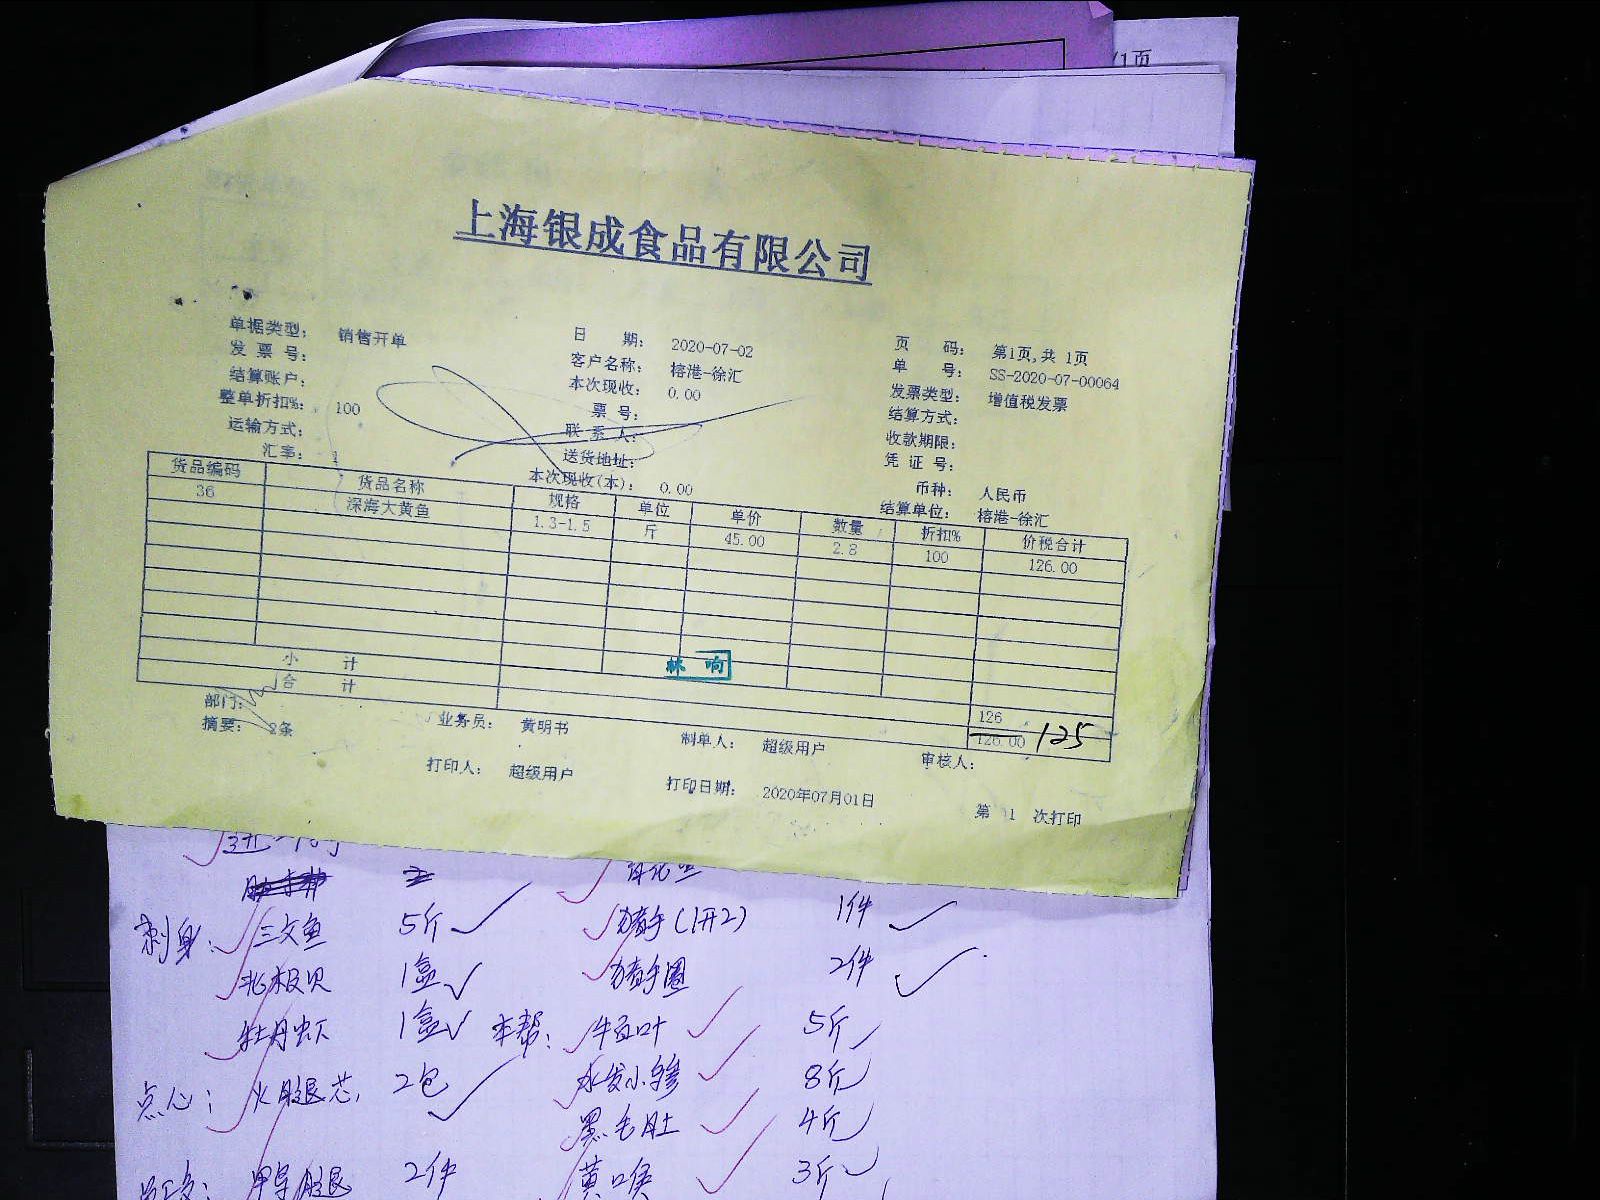 /1页
上海银成食品有限公司
单据类型： 销售开单 日 期： 2020-07-02 页 码： 第1页,共 1页
发 票 号： 客户名称： 榕港-徐汇 单 号： SS-2020-07-00064
结算账户： 本次现收： 0.00 发票类型： 增值税发票
整单折扣%： 100 票 号： 结算方式：
运输方式： 联 系 人： 收款期限：
汇率： 1 送货地址： 凭 证 号：
本次现收(本)： 0.00 币种： 人民币
结算单位： 榕港-徐汇
货品编码 货品名称 规格 单位 单价 数量 折扣% 价税合计
36 深海大黄鱼 1.3-1.5 斤 45.00 2.8 100 126.00
林 响
小 计 126
合 计 126.00 125
部门： 业务员： 黄明书 制单人： 超级用户 审核人：
摘要： 2条
打印人： 超级用户 打印日期： 2020年07月01日 第 1 次打印
刺身： 三文鱼 5斤 猪手(1开2) 1件
北极贝 1盒 猪手圈 2件
牡丹虾 1盒 本帮： 牛百叶 5斤
点心： 火腿芯 2包 水发小参 8斤
黑毛肚 4斤
2件 黄喉 3斤